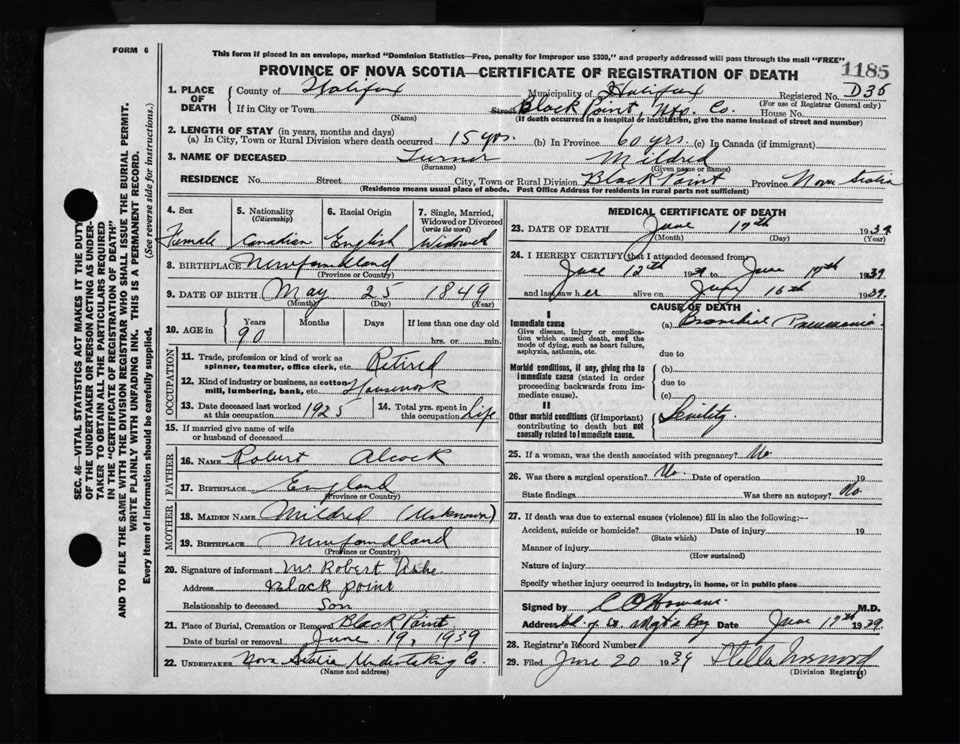 FORM 6
This form if placed in an envelope, marked "Dominion Statistics—Free, penalty for improper use $300," and properly addressed will pass through the mail "FREE"
PROVINCE OF NOVA SCOTIA—CERTIFICATE OF REGISTRATION OF DEATH
1185
1. PLACE OF DEATH
County of Halifax Municipality of Halifax Registered No. D36
(For use of Registrar General only)
If in City or Town Street Black Point, Hfx. Co. House No.
(Name) (If death occurred in a hospital or institution, give the name instead of street and number)
2. LENGTH OF STAY (in years, months and days)
(a) In City, Town or Rural Division where death occurred 15 yrs. (b) In Province 60 yrs. (c) In Canada (if immigrant)
3. NAME OF DECEASED Turner Mildred
(Surname) (Given name or names)
RESIDENCE No. Street City, Town or Rural Division Black Point Province Nova Scotia
(Residence means usual place of abode. Post Office Address for residents in rural parts not sufficient)
4. Sex
Female
5. Nationality (Citizenship)
Canadian
6. Racial Origin
English
7. Single, Married, Widowed or Divorced (write the word)
Widowed
8. BIRTHPLACE Newfoundland
(Province or Country)
9. DATE OF BIRTH May 25 1849
(Month) (Day) (Year)
10. AGE in Years Months Days If less than one day old
90 hrs. or min.
OCCUPATION
11. Trade, profession or kind of work as spinner, teamster, office clerk, etc. Retired
12. Kind of industry or business, as cotton mill, lumbering, bank, etc. Housework
13. Date deceased last worked at this occupation 1925
14. Total yrs. spent in this occupation Life
15. If married give name of wife or husband of deceased
FATHER
16. NAME Robert Alcock
17. BIRTHPLACE England
(Province or Country)
MOTHER
18. MAIDEN NAME Mildred (Unknown)
19. BIRTHPLACE Newfoundland
(Province or Country)
20. Signature of informant Mr. Robert Ashe
Address Black Point
Relationship to deceased Son
21. Place of Burial, Cremation or Removal Black Point
Date of burial or removal June 19, 1939
22. UNDERTAKER Nova Scotia Undertaking Co.
(Name and address)
MEDICAL CERTIFICATE OF DEATH
23. DATE OF DEATH June 17th 1939
(Month) (Day) (Year)
24. I HEREBY CERTIFY that I attended deceased from
June 12th 1939 to June 17th 1939
and last saw her alive on June 16th 1939.
CAUSE OF DEATH
I
Immediate cause
Give disease, injury or complication which caused death, not the mode of dying, such as heart failure, asphyxia, asthenia, etc.
(a) Bronchial Pneumonia
due to
Morbid conditions, if any, giving rise to immediate cause (stated in order proceeding backwards from immediate cause).
(b)
due to
(c)
II
Other morbid conditions (if important) contributing to death but not causally related to immediate cause.
Senility
25. If a woman, was the death associated with pregnancy? No
26. Was there a surgical operation? No. Date of operation 19
State findings Was there an autopsy? No.
27. If death was due to external causes (violence) fill in also the following:--
Accident, suicide or homicide? Date of injury 19
(State which)
Manner of injury
(How sustained)
Nature of injury
Specify whether injury occurred in industry, in home, or in public place
Signed by M.D.
Address Date June 17th 1939.
28. Registrar's Record Number
29. Filed June 20 1939 Stella
(Division Registrar)
SEC. 46—VITAL STATISTICS ACT MAKES IT THE DUTY
OF THE UNDERTAKER OR PERSON ACTING AS UNDER-
TAKER TO OBTAIN ALL THE PARTICULARS REQUIRED
IN THE "CERTIFICATE OF REGISTRATION OF DEATH"
AND TO FILE THE SAME WITH THE DIVISION REGISTRAR WHO SHALL ISSUE THE BURIAL PERMIT.
WRITE PLAINLY WITH UNFADING INK. THIS IS A PERMANENT RECORD.
Every item of information should be carefully supplied. (See reverse side for instructions.)